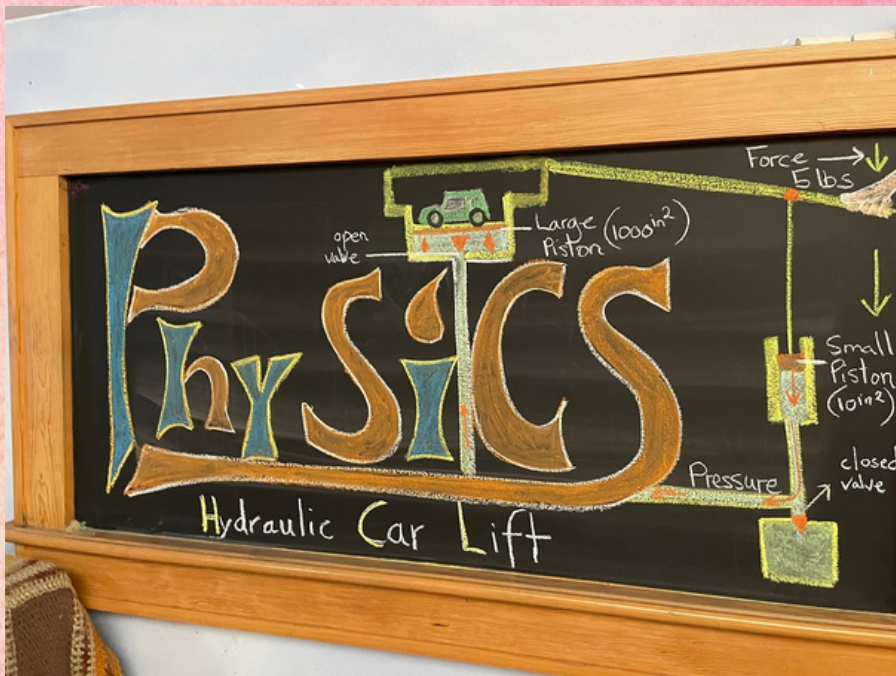 Force
5 lbs
open
valve
Large
Piston (1000in²)
PhySiCS
Small
Piston
(10in²)
closed
valve
Pressure
Hydraulic Car Lift